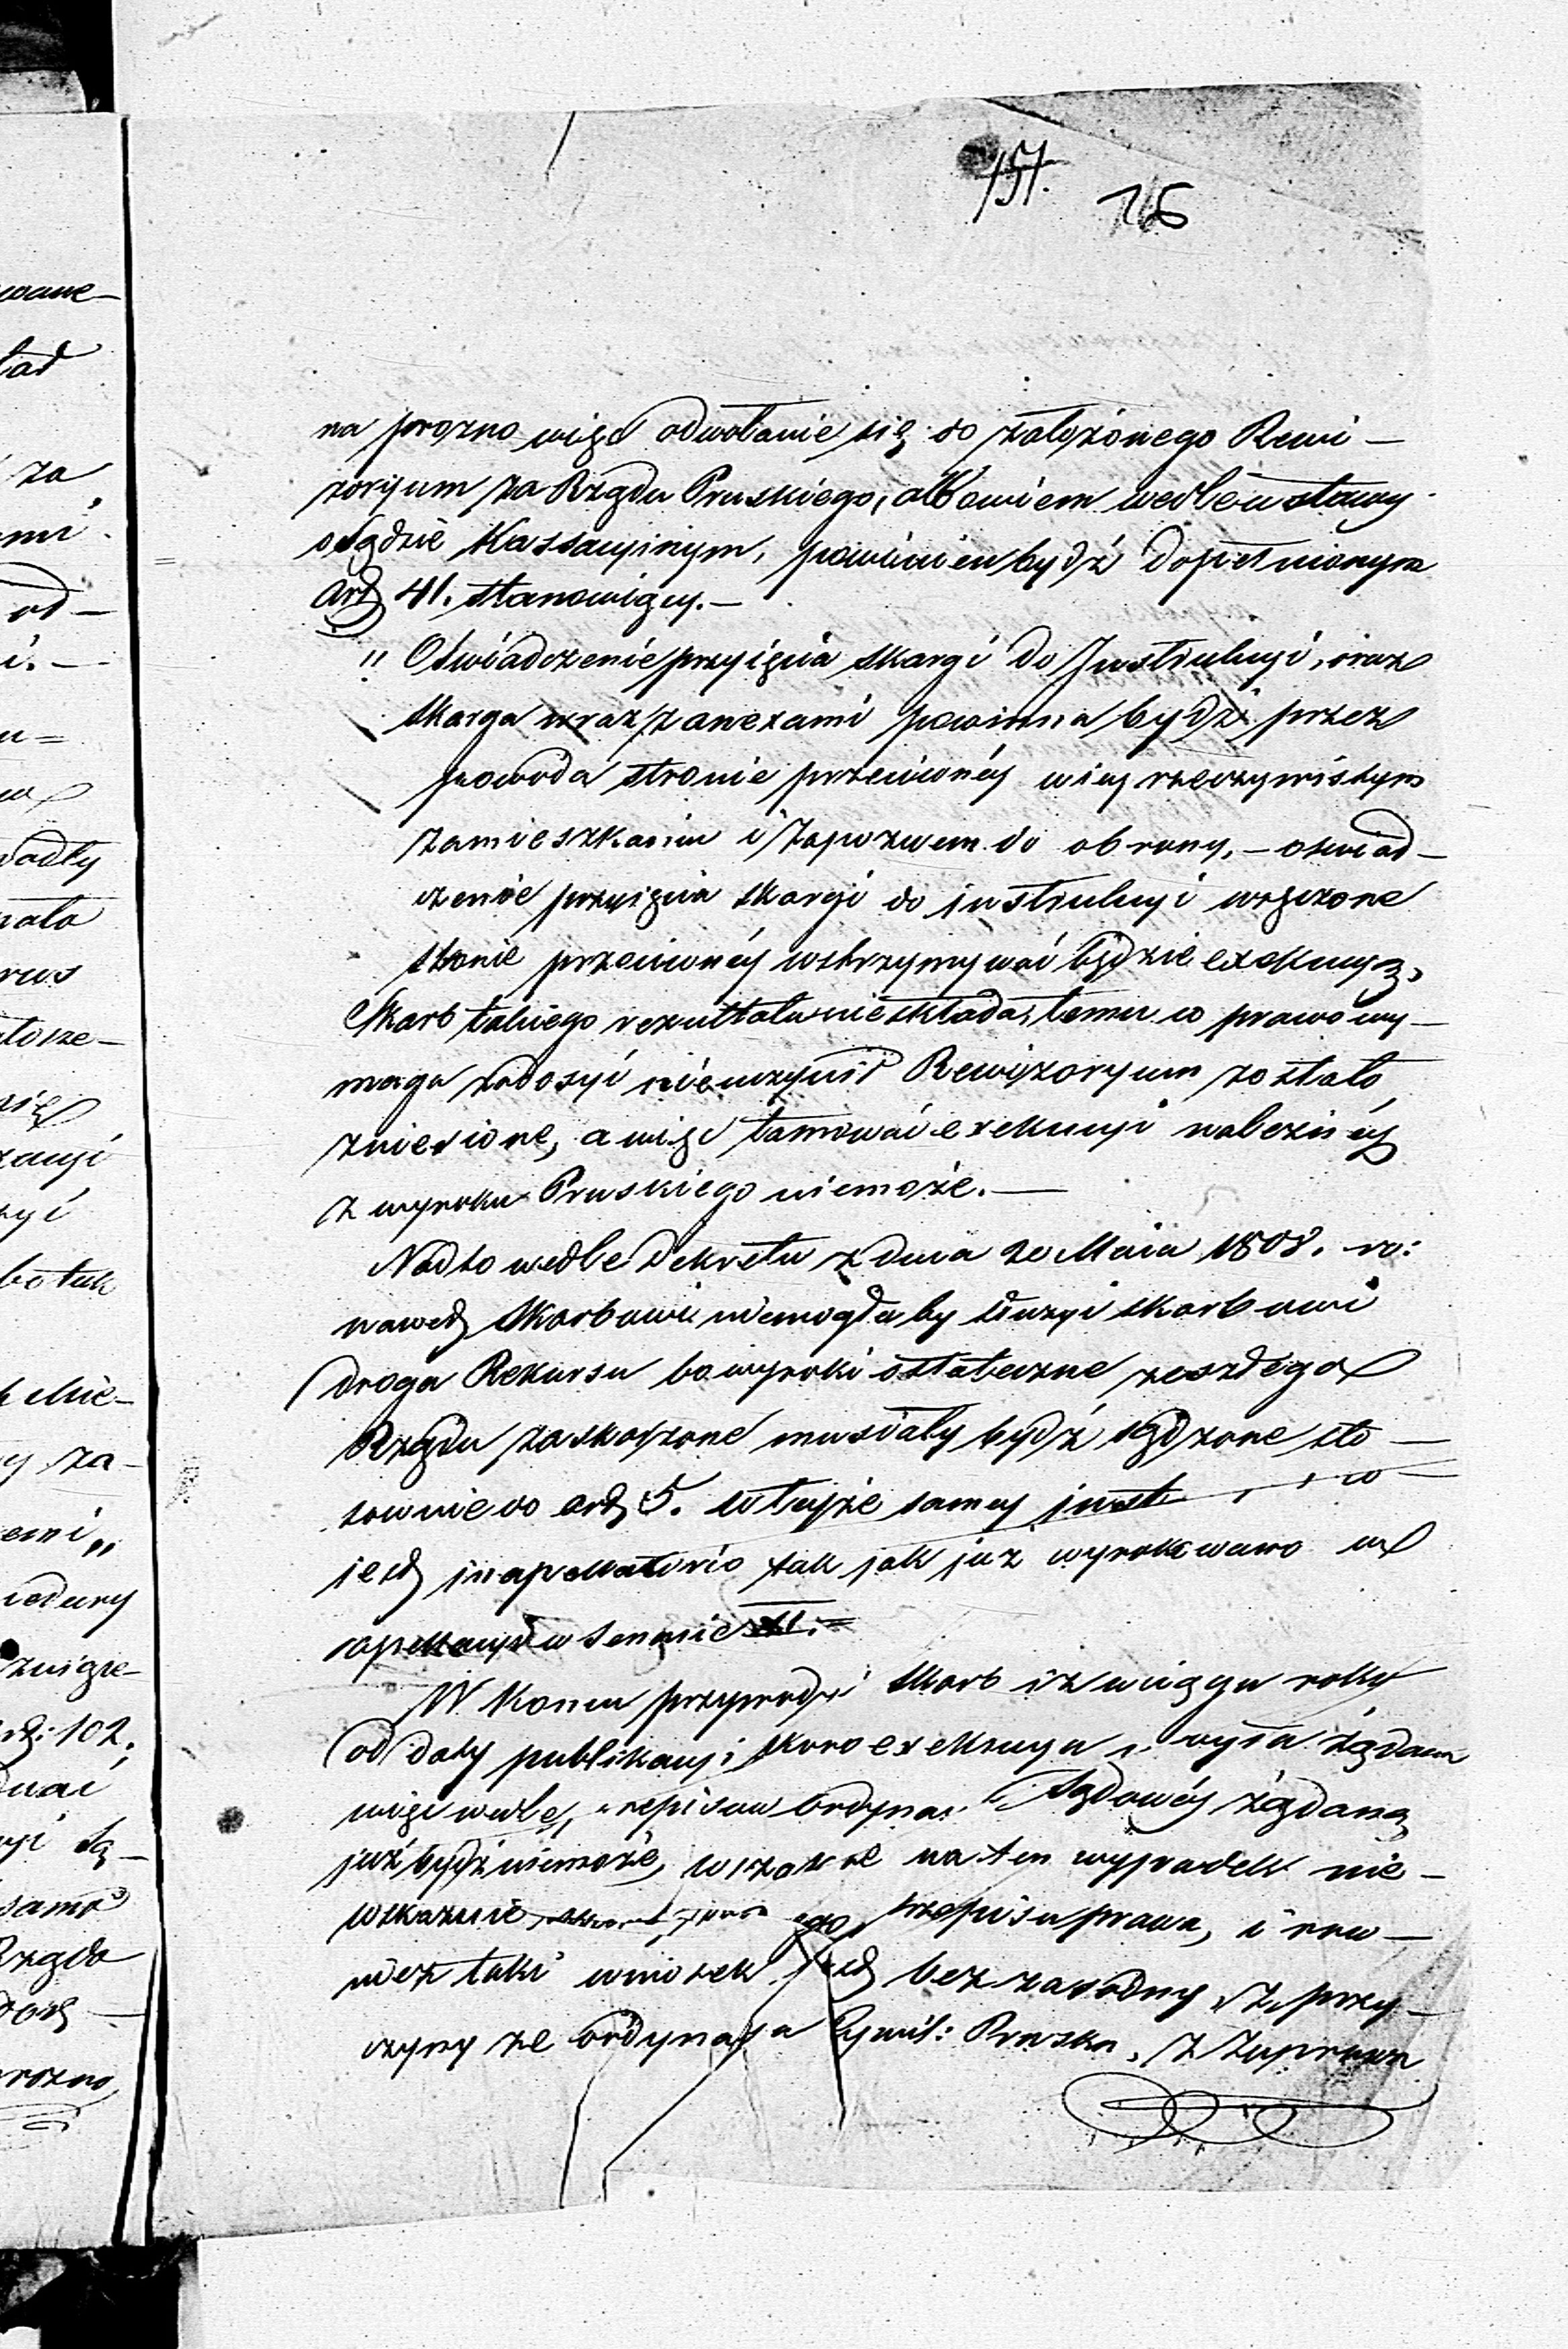 151.
16
na prozno więc odwołanie się do założonego Rewi-
zoryum za Rządu Pruskiego, albowiem wedle ustawy
o Sądzie Kassacyinym, powinien bydź dopełnionym
art 41. stanowiący.—
" Oświadczenie przyięcia skargi do Instrukcyi, oraz
skarga wraz z anexami powinna bydź przez
powoda stronie przeciwnéy wiey rzeczywistym
zamieszkaniu i zapozwem do obrony,—oświad-
czenie przyięcia skargi do instrukcyi wręczone
stronie przeciwnéy wstrzymywać będzie exekucyą,
Skarb takiego rezultatu nieskłada, temu co prawo wy-
maga zadosyć nieuczynił Rewizoryum zostało
zniesione, a więc tamować exekucyi należnéy
z wyroku Pruskiego niemoże.—
Nadto wedle Dekretu z dnia 20 Maia 1808. ro:
nawet Skarbowi niemogła by służyć skarbowi
droga Rekursu bo wyroki ostateczne zeszłego
Rządu zaskarżone musiały bydź sądzone sto-
sownie do art 5. w teyże samey inst w
iest inapellatorio tak jak już wyrokowano w
apellacyi w Senacie XI.=
W Końcu przywodzi Skarb iż w ciągu roku
od daty publikacyi skoro exekucya żądana
więc wedle przepisów Ordynac Sądowéy żądaną
już bydź niemoże, wszakże na ten wypadek nie-
wskazuie przepisu prawa, i rów-
nież taki wniosek jest bezzasadny, z przy-
czyny że Ordynacya Cywil: Pruska, z zaprowa